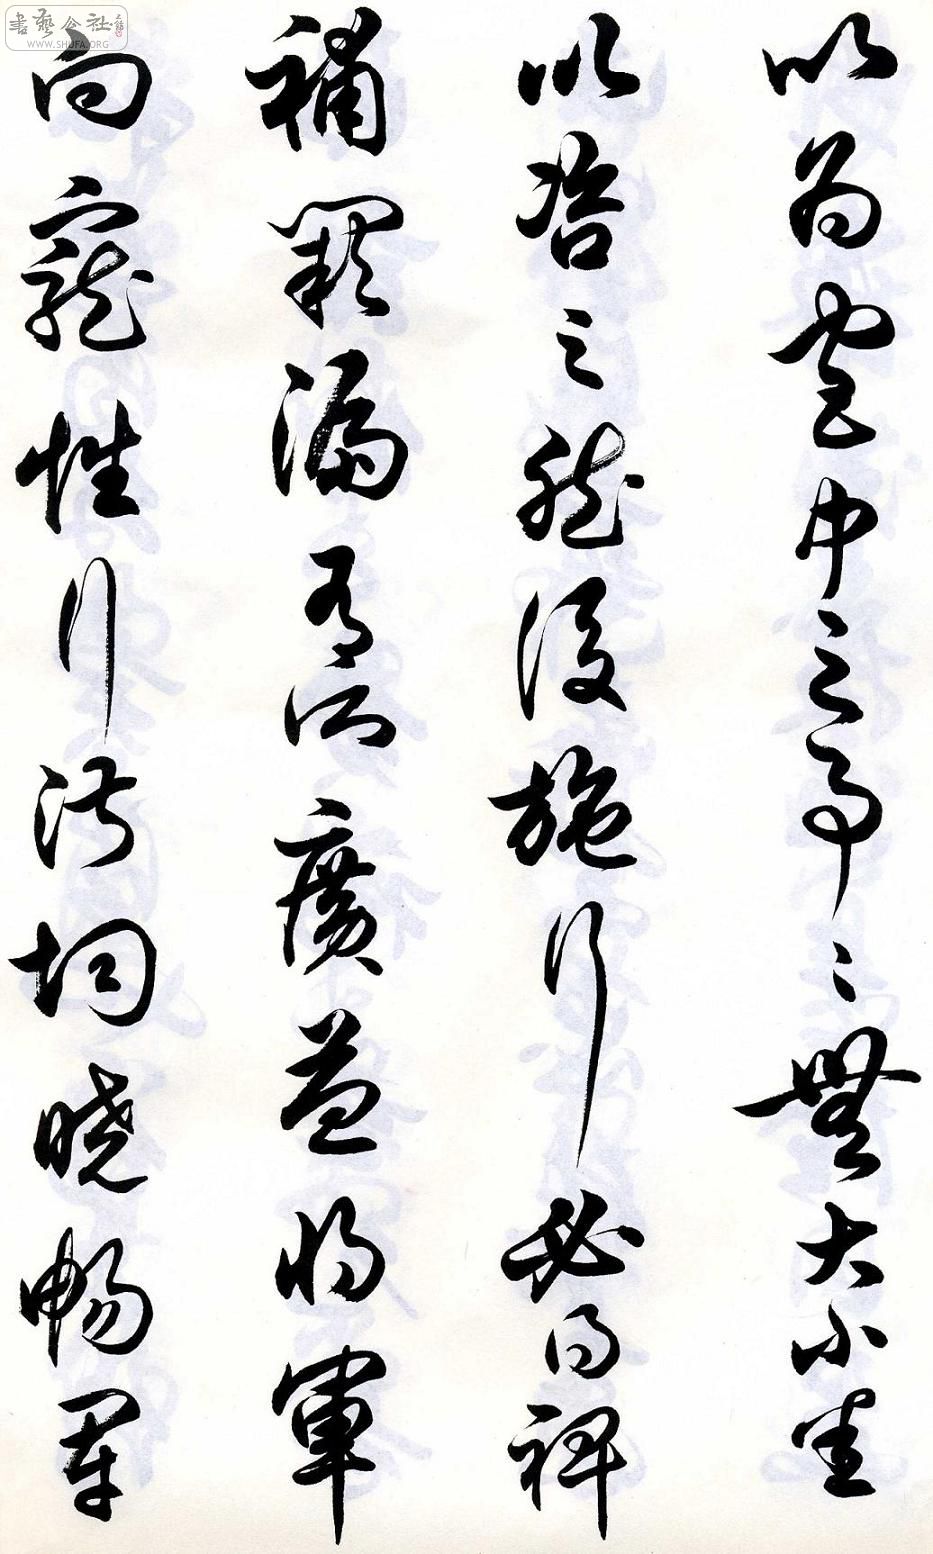 書藝公社
WWW.SHUFA.ORG
以為宮中之事〻無大小悉
以咨之然後施行必得裨
補闕漏有所廣益將軍
向寵性行淑均曉暢軍